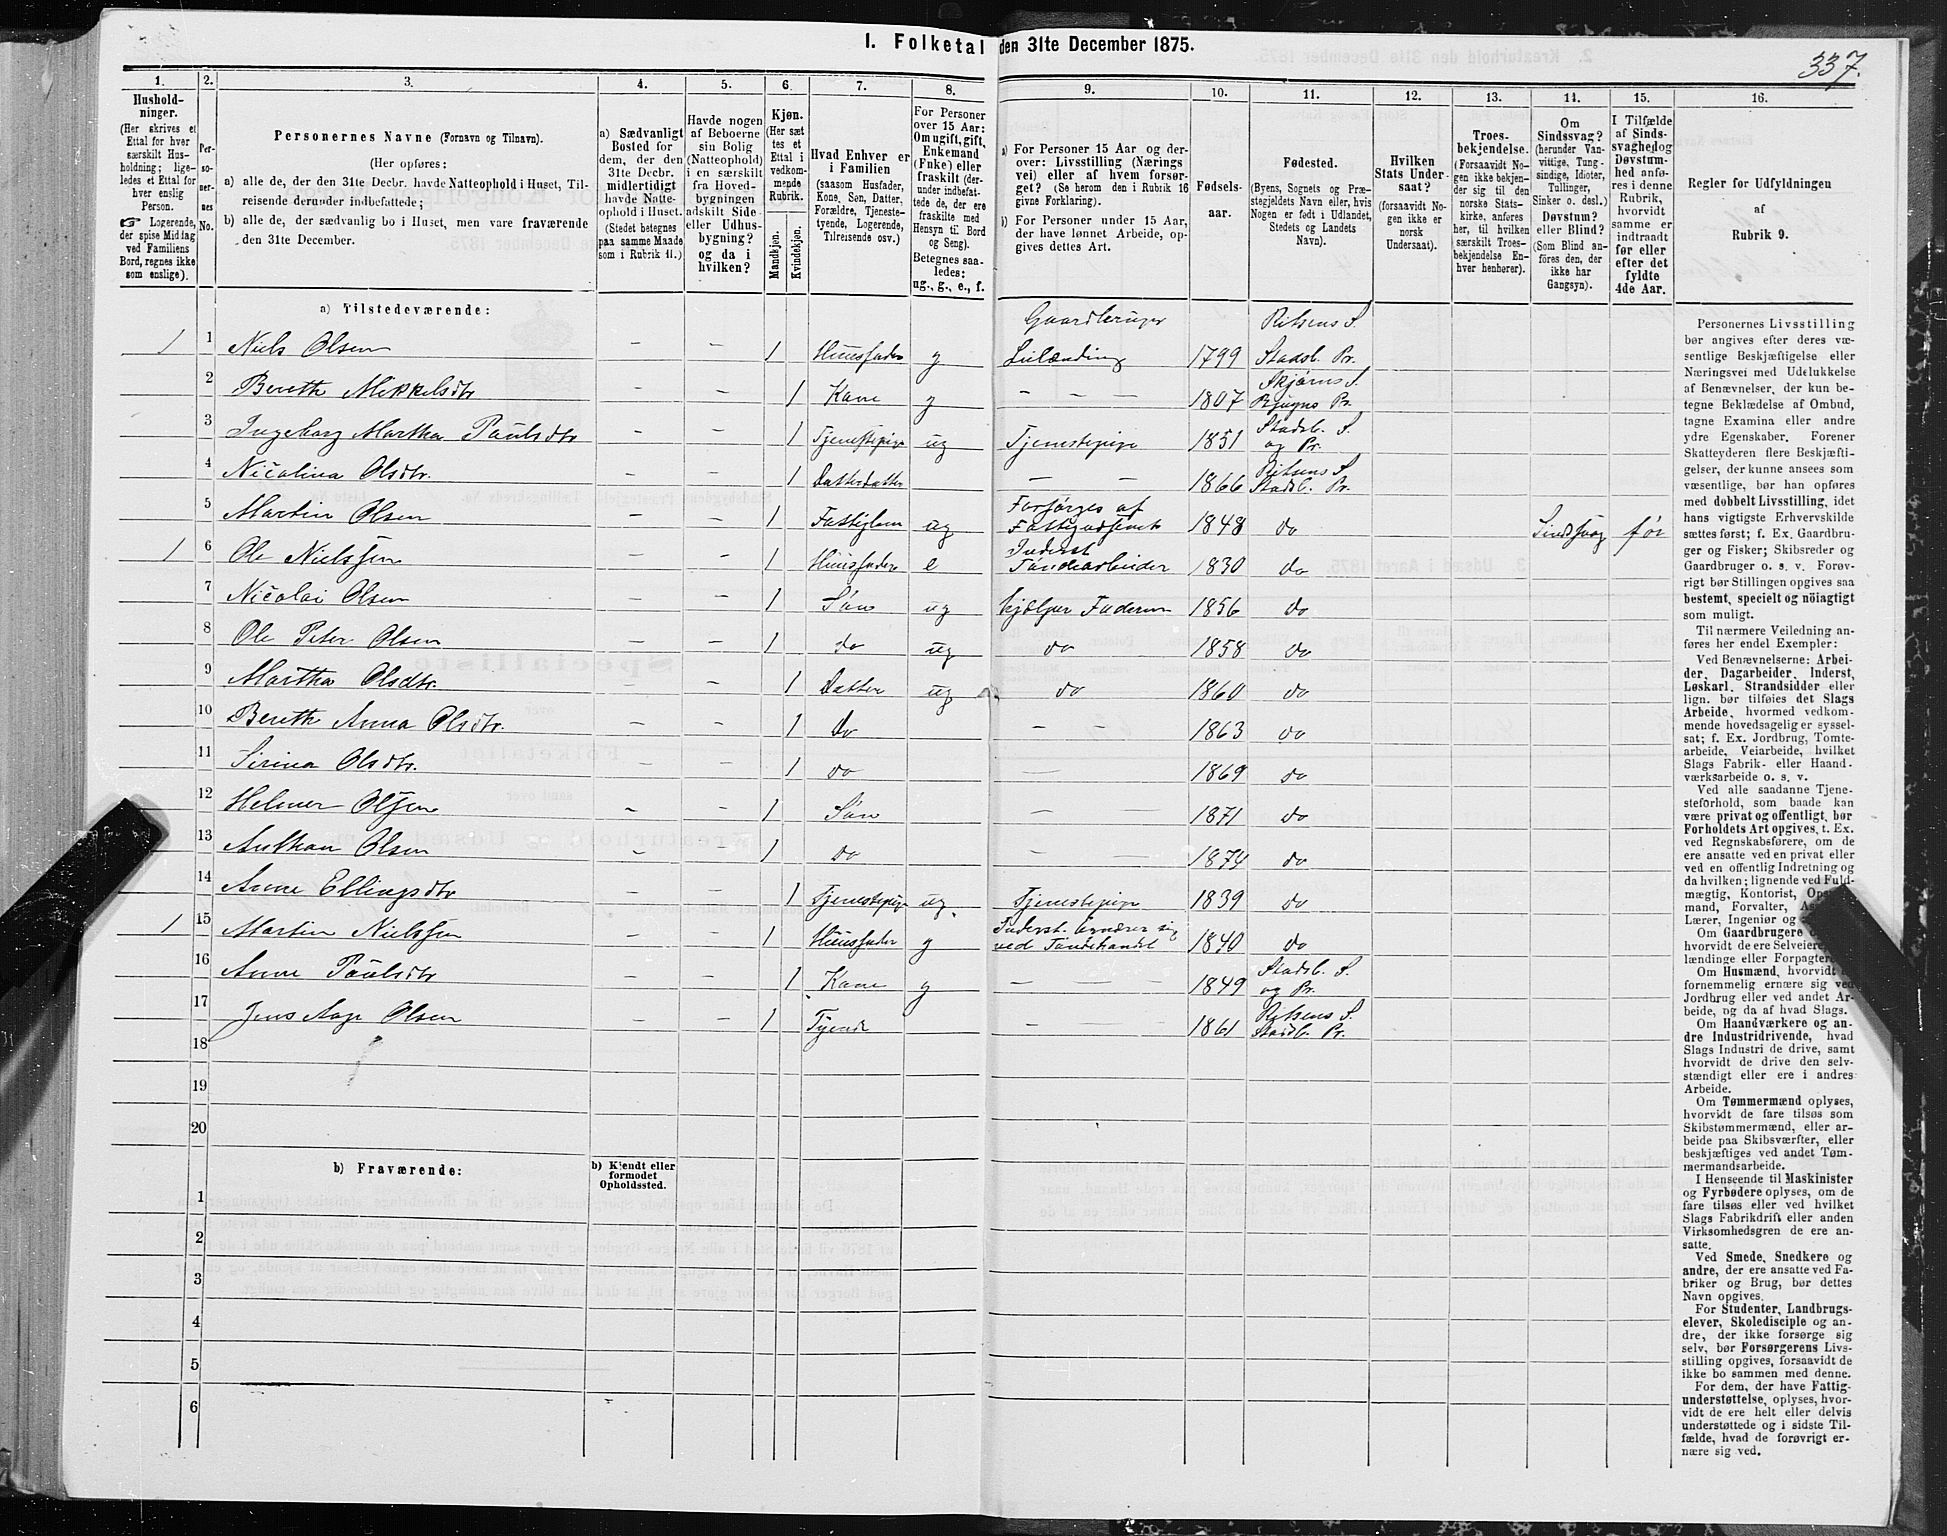 I. Folketal den 31te December 1875.
337.
1. 2. 3. 4. 5. 6. 7. 8. 9. 10. 11. 12. 13. 14. 15. 16.
Hushold-
ninger.
(Her skrives et
Ettal for hver
særskilt Hus-
holdning; lige-
ledes et Ettal for
hver enslig
Person.
☞ Logerende,
der spise Middag
ved Familiens
Bord, regnes ikke
som enslige).
Per-
so-
ner-
nes
No.
Personernes Navne (Fornavn og Tilnavn).
(Her opføres:
a) alle de, der den 31te Decbr. havde Natteophold i Huset, Til-
reisende derunder indbefattede;
b) alle de, der sædvanlig bo i Huset, men vare fraværende
den 31te December.
a) Sædvanligt
Bosted for
dem, der den
31te Decbr.
midlertidigt
havde Natte-
ophold i Huset.
(Stedet betegnes
paa samme Maade
som i Rubrik 11.)
Havde nogen
af Beboerne
sin Bolig
(Natteophold)
i en særskilt
fra Hoved-
bygningen
adskilt Side-
eller Udhus-
bygning?
og da i
hvilken?
Kjøn.
(Her sæt
tes et
Ettal i
vedkom-
mende
Rubrik.
Mandkjøn.
Kvindekjøn.
Hvad Enhver er
i Familien
(saasom Husfader,
Kone, Søn, Datter,
Forældre, Tjeneste-
tyende, Logerende,
Tilreisende osv.)
For Personer
over 15 Aar:
Om ugift, gift,
Enkemand
(Enke) eller
fraskilt (der-
under indbefat-
tede de, der ere
fraskilte med
Hensyn til Bord
og Seng).
Betegnes saa-
ledes:
ug., g., e., f.
a) For Personer 15 Aar og der-
over: Livsstilling (Nærings
vei) eller af hvem forsør-
get? (Se herom den i Rubrik 16
givne Forklaring).
b) For Personer under 15 Aar,
der have lønnet Arbeide, op-
gives dettes Art.
Fødsels-
aar.
Fødested.
(Byens, Sognets og Præ-
stegjeldets Navn eller, hvis
Nogen er født i Udlandet,
Stedets og Landets
Navn).
Hvilken
Stats Under-
saat?
(forsaavidt No-
gen ikke er
norsk
Undersaat).
Troes-
bekjendelse.
(Forsaavidt No-
gen ikke bekjen-
der sig til den
norske Stats-
kirke, anføres
her, til hvilken
særskilt Troes-
bekjendelse En-
hver henhører).
Om
Sindssvag?
(herunder Van-
vittige, Tung-
sindige, Idioter,
Tullinger,
Sinker o. desl.)
Døvstum?
eller Blind?
(Som Blind an-
føres den, der
ikke har
Gangsyn).
I Tilfælde
af Sinds-
svaghed og
Døvstum-
hed anfø-
res i denne
Rubrik,
hvorvidt
samme er
indtraadt
før eller
efter det
fyldte
4de Aar.
Regler for Udfyldningen
af
Rubrik 9.
a) Tilstedeværende:
1 1 Niels Olsen – – 1 Huusfader g Gaardbruger Leilænding 1799 Ritsens S. Stadsb. Pr.
2 Bereth Mikkelsdtr – – 1 Kone g – – – 1807 Skjørns S. Bjugns Pr.
3 Ingeborg Martha Paulsdtr – – 1 Tjenstepige ug Tjenstepige 1851 Stadsb. S. og Pr.
4 Nicolina Olsdtr. – – 1 Datterdatter – – 1866 Ritsens S. Stadsb. Pr.
5 Martin Olsen – – 1 Fattiglem ug Forsørges af Fattigvæsenet 1848 do Sindssvag før
1 6 Ole Nielssen – – 1 Huusfader e Inderst 1830 do
7 Nicolai Olsen – – 1 Søn ug hjælper Faderen 1856 do
8 Ole Peter Olsen – – 1 do ug do 1858 do
9 Martha Olsdtr. – – 1 Datter ug do 1860 do
10 Bereth Anna Olsdtr. – – 1 Do – – 1863 do
11 Sirina Olsdtr. – – 1 do – – 1869 do
12 Helmer Olsen – – 1 Søn – – 1871 do
13 Anthon Olsen – – 1 do – – 1874 do
14 Anne Ellingsdtr – – 1 Tjenstepige ug. Tjenstepige 1839 do
1 15 Martin Nielssen – – 1 Huusfader g Inderst. Ernærer sig ved 1840 do
16 Anne Paulsdtr – – 1 Kone g – – – 1849 Stadsb. S. og Pr.
17 Jens Aage Olsen – – 1 Tyende – – 1861 Ritsens S. Stadsb. Pr.
18
19
20
b) Fraværende:
b) Kjendt eller
formodet
Opholdssted.
1
2
3
4
5
6
Personernes Livsstilling
bør angives efter deres væ-
sentlige Beskjæftigelse eller
Næringsvei med Udelukkelse
af Benævnelser, der kun be-
tegne Beklædelse af Ombud,
tagne Examina eller andre
ydre Egenskaber. Forener
Skatteyderen flere Beskjæfti-
gelser, der kunne ansees som
væsentlige, bør han opføres
med dobbelt Livsstilling, idet
hans vigtigste Erhvervskilde
sættes først; f. Ex. Gaardbru-
ger og Fisker; Skibsreder og
Gaardbruger o. s. v. Forøv-
rigt bør Stillingen opgives saa
bestemt, specielt og nöiagtigt
som muligt.
Til nærmere Veiledning an-
føres her endel Exempler:
Ved Benævnelserne: Arbei-
der, Dagarbeider, Inderst,
Løskarl, Strandsidder eller
lign. bør tilføies det Slags
Arbeide, hvormed vedkom-
mende hovedsagelig er syssel-
sat; f. Ex. Jordbrug, Tomte-
arbeide, Veiarbeide, hvilket
Slags Fabrik- eller Haand-
værksarbeide o. s. v.
Ved alle saadanne Tjene-
steforhold, som baade kan
være privat og offentligt, bør
Forholdets Art opgives, t. Ex.
ved Regnskabsførere, om de
ere ansatte ved en privat eller
ved en offentlig Indretning og
da hvilken; lignende ved Fuld-
mægtig, Kontorist,
mand, Forvalter,
Lærer, Ingeniør og
Om Gaardbrugere
hvorvidt de ere Selveiere,
lændinge eller Forpagtere.
Om Husmænd, hvorvidt
fornemmelig ernære sig ved
Jordbrug eller ved andet Ar-
beide, og da af hvad Slags.
Om Haandværkere og an-
dre Industridrivende, hvad
Slags Industri de drive, samt
hvorvidt de drive den selv-
stændigt eller ere i andres
Arbeide.
Om Tømmermænd oplyses,
hvorvidt de fare tilsøs som
Skibstømmermænd, eller ar-
beide paa Skibsværfter, eller
beskjæftiges ved andet Tøm-
mermandsarbeide.
I Henseende til Maskinister
og Fyrbødere oplyses, om de
fare tilsøs eller ved hvilket
Slags Fabrikdrift eller anden
Virksomhedsgren de ere an-
satte.
Ved Smede, Snedkere og
andre, der ere ansatte ved Fa-
briker og Brug, bør dettes
Navn opgives.
For Studenter, Landbrugs-
elever, Skoledisciple og an-
dre, der ikke forsørge sig
selv, bør Forsørgerens Livs-
stilling opgives, forsaavidt de
ikke bo sammen med denne.
For dem, der have Fattig-
understøttelse, oplyses, hvor-
vidt de ere helt eller delvis
understøttede og i sidste Til-
fælde, hvad de forøvrigt er-
nære sig ved.